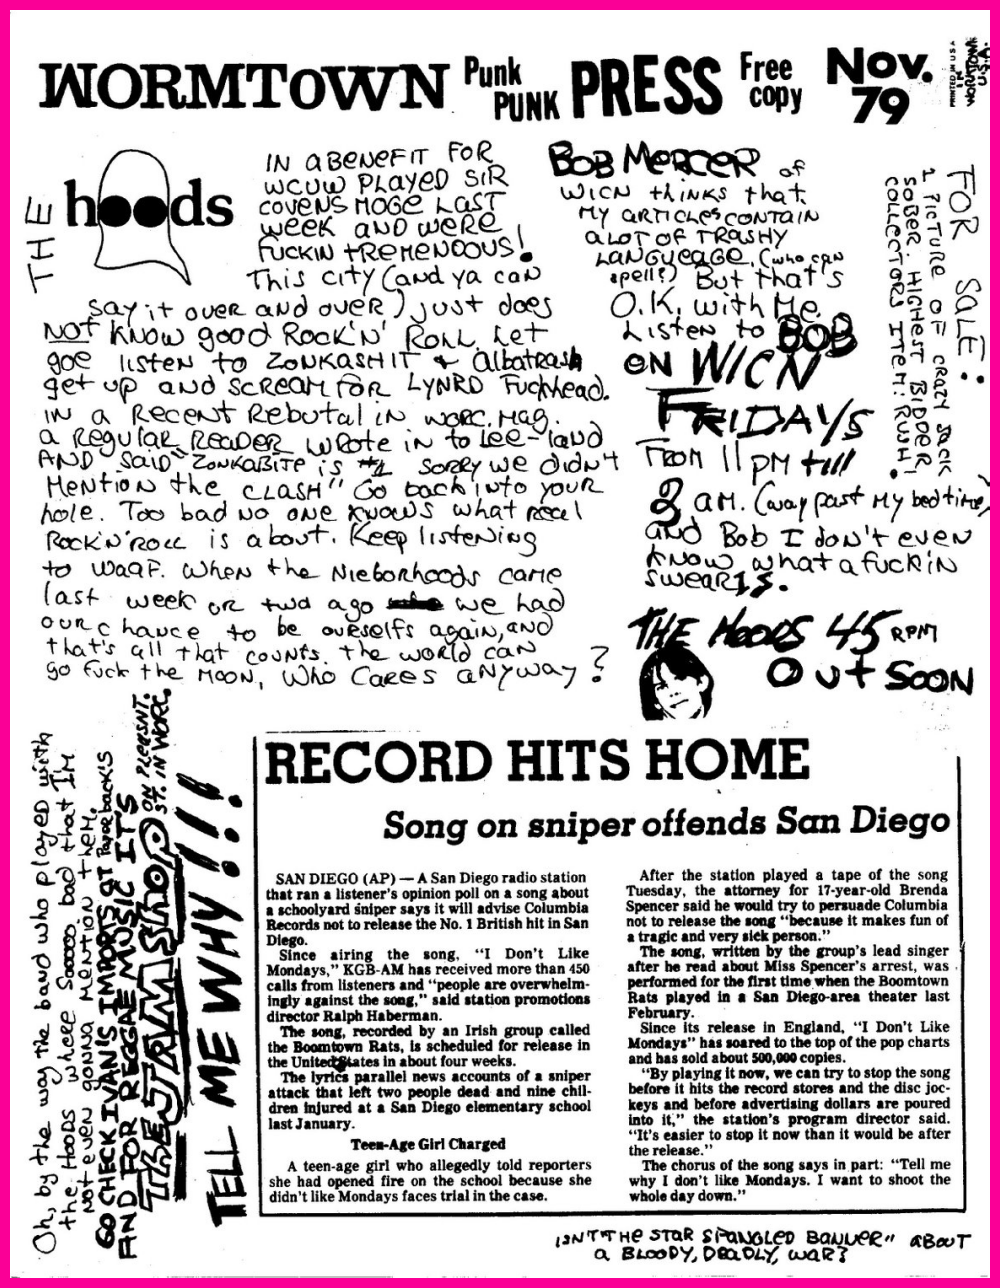 WORMTOWN Punk PUNK PRESS Free copy Nov. 79
PRINTED IN U.S.A
IN
WORMTOWN
U.S.A.
THE hoods
IN A BENEFIT FOR
WCUW PLAYED SIR
COVENS MOGE LAST
WEEK AND WERE
FUCKIN TREMENDOUS!
This city (and ya can
say it over and over) just does
NOT know good Rock'N' Roll. Let
goe listen to ZONKASHIT & Albatrash
get up and scream for LYNRD Fuckhead.
IN a Recent Rebutal in worc. Mag.
a Regular Reader wrote in to Lee-land
AND said "ZONKABITE is #1 sorry we didn't
Mention the CLASH" Go back into your
hole. Too bad no one knows what real
Rock'N'Roll is about. Keep listening
to WAAF. When the Nieborhoods came
last week or two ago we had
our chance to be ourselfs again, and
that's all that counts. the world can
go fuck the MOON, Who Cares anyway?
BOB MERCER of
WICN thinks that
MY ARTICLES CONTAIN
A LOT OF TRASHY
LANGUEAGE, (who can
spell?) But that's
O.K. with Me.
Listen to BOB
ON WICN
FRIDAYS
FROM 11 PM till
2 AM. (way past my bedtime)
and Bob I don't even
know what a fuckin
swear is.
FOR SALE:
1 PICTURE OF CRAZY JACK
SOBER. HIGHEST BIDDER!
COLLECTORS ITEM: RUSH!
THE HOODS 45 RPM
OUT SOON
Oh, by the way the band who played with
the Hoods wheee Soooooo bad that Im
Not even gonna mention them.
GO CHECK IVAN'S IMPORTS AT Paperback's
AND FOR REGGAE MUSIC IT'S
THE JAM SHOP ON PLEASNT.
ST. IN WORC.
TELL ME WHY!!!!
RECORD HITS HOME
Song on sniper offends San Diego
SAN DIEGO (AP) — A San Diego radio station
that ran a listener's opinion poll on a song about
a schoolyard sniper says it will advise Columbia
Records not to release the No. 1 British hit in San
Diego.
Since airing the song, "I Don't Like
Mondays," KGB-AM has received more than 450
calls from listeners and "people are overwhelm-
ingly against the song," said station promotions
director Ralph Haberman.
The song, recorded by an Irish group called
the Boomtown Rats, is scheduled for release in
the United States in about four weeks.
The lyrics parallel news accounts of a sniper
attack that left two people dead and nine chil-
dren injured at a San Diego elementary school
last January.
Teen-Age Girl Charged
A teen-age girl who allegedly told reporters
she had opened fire on the school because she
didn't like Mondays faces trial in the case.
After the station played a tape of the song
Tuesday, the attorney for 17-year-old Brenda
Spencer said he would try to persuade Columbia
not to release the song "because it makes fun of
a tragic and very sick person."
The song, written by the group's lead singer
after he read about Miss Spencer's arrest, was
performed for the first time when the Boomtown
Rats played in a San Diego-area theater last
February.
Since its release in England, "I Don't Like
Mondays" has soared to the top of the pop charts
and has sold about 500,000 copies.
"By playing it now, we can try to stop the song
before it hits the record stores and the disc joc-
keys and before advertising dollars are poured
into it," the station's program director said.
"It's easier to stop it now than it would be after
the release."
The chorus of the song says in part: "Tell me
why I don't like Mondays. I want to shoot the
whole day down."
ISN'T "THE STAR SPANGLED BANNER" ABOUT
A BLOODY, DEADLY, WAR?